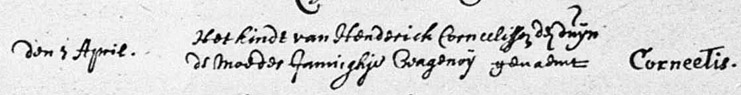 den 5 April. Het kindt van Henderick Corneelissz de Duijn
de Moeder Jannighje Wagenoy genaemt Corneelis.